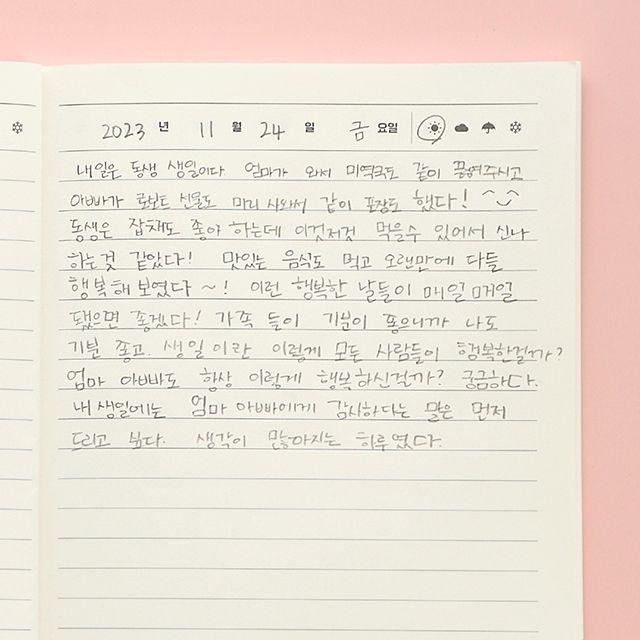 2023 년 11 월 24 일 금 요일
내일은 동생 생일이다 엄마가 와서 미역국도 같이 끓여주시고
아빠가 로보트 선물도 미리 사와서 같이 포장도 했다! ^‿^
동생은 잡채도 좋아 하는데 이것저것 먹을수 있어서 신나
하는것 같았다! 맛있는 음식도 먹고 오랜만에 다들
행복해 보였다 ~! 이런 행복한 날들이 매일 매일
됐으면 좋겠다! 가족 들이 기분이 좋으니까 나도
기분 좋고. 생일이란 이렇게 모든 사람들이 행복한걸까?
엄마 아빠도 항상 이렇게 행복하신걸까? 궁금하다.
내 생일에는 엄마 아빠에게 감사하다는 말은 먼저
드리고 싶다. 생각이 많아지는 하루였다.